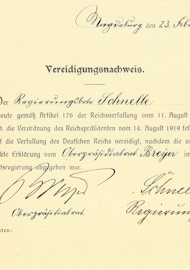 Magdeburg den 23. Febr
Vereidigungsnachweis.
Der Regierungsbote Schnelle
heute gemäß Artikel 176 der Reichsverfassung vom 11. August
ch die Verordnung des Reichspräsidenten vom 14. August 1919 fest
die Verfassung des Deutschen Reichs vereidigt, nachdem die
Erklärung vom Oberpräsidialrat Breyer im
tsregierung abgegeben war.
Schnell
Oberpräsidialrat.
Regierung